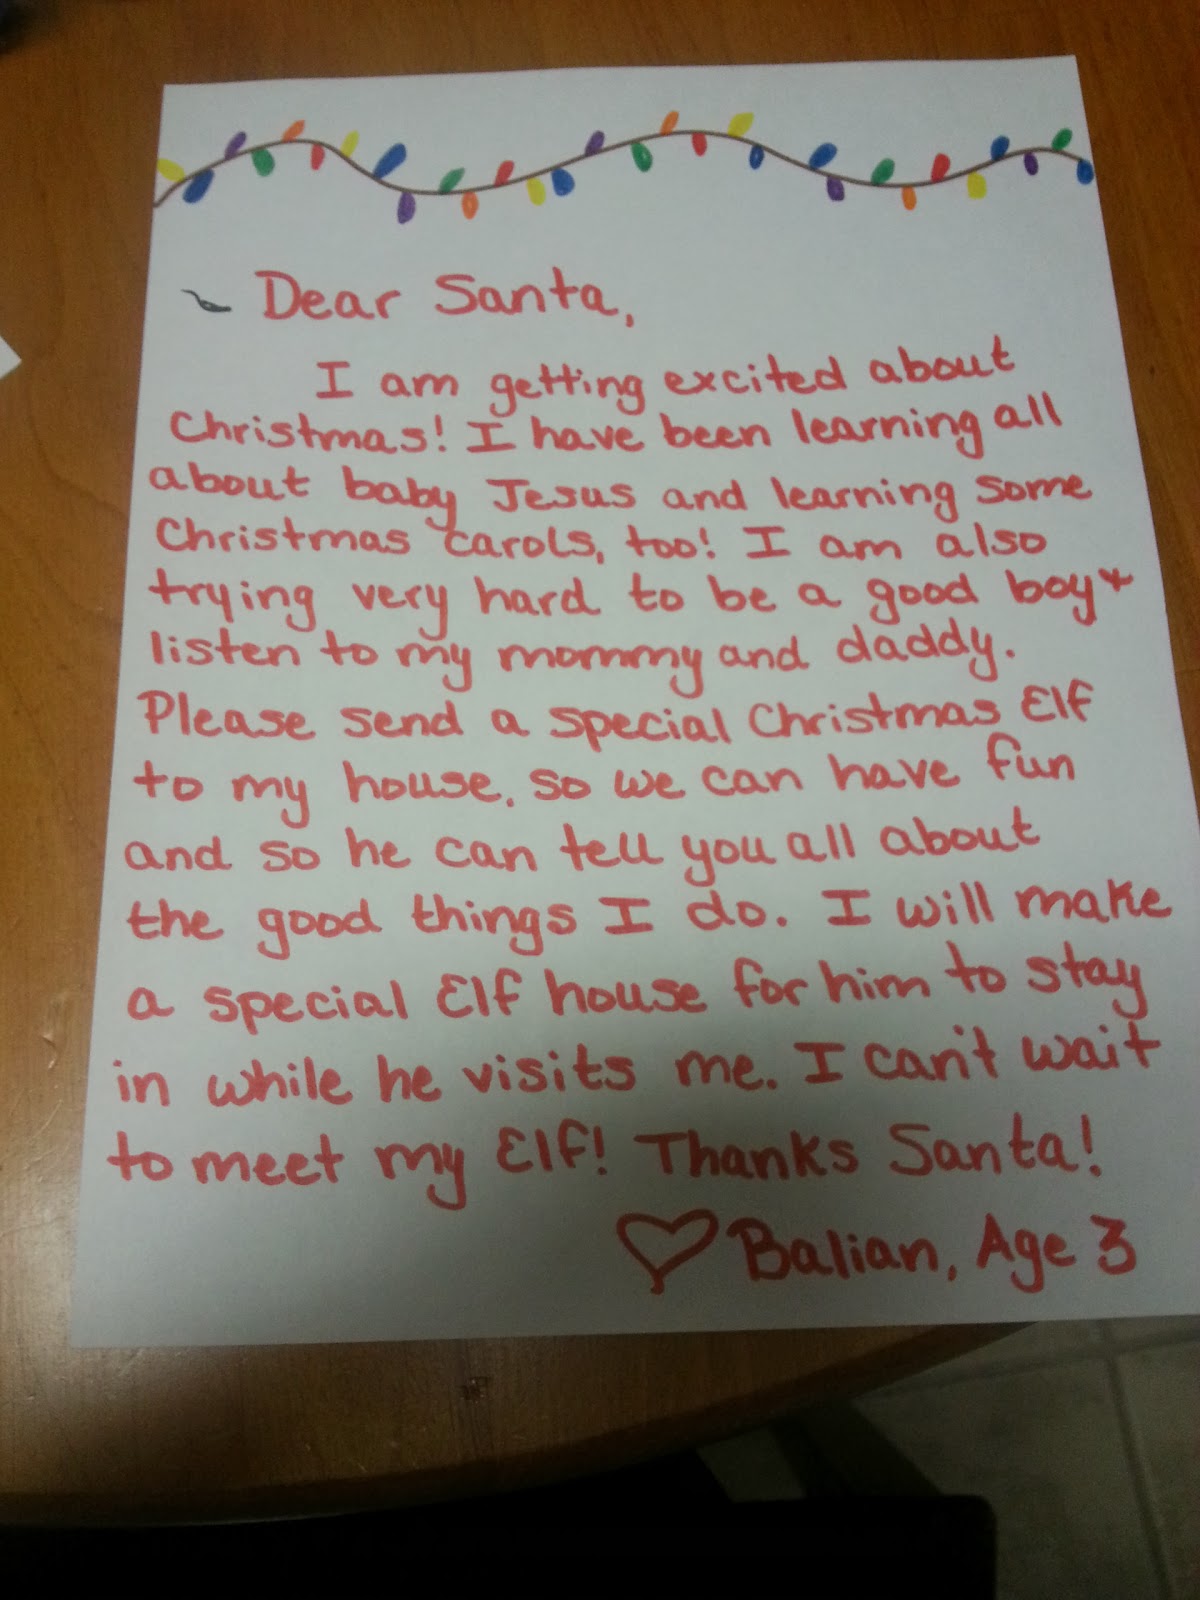 Dear Santa,
I am getting excited about
Christmas! I have been learning all
about baby Jesus and learning some
Christmas carols, too! I am also
trying very hard to be a good boy +
listen to my mommy and daddy.
Please send a special Christmas Elf
to my house, so we can have fun
and so he can tell you all about
the good things I do. I will make
a special Elf house for him to stay
in while he visits me. I can't wait
to meet my Elf! Thanks Santa!
♡ Balian, Age 3